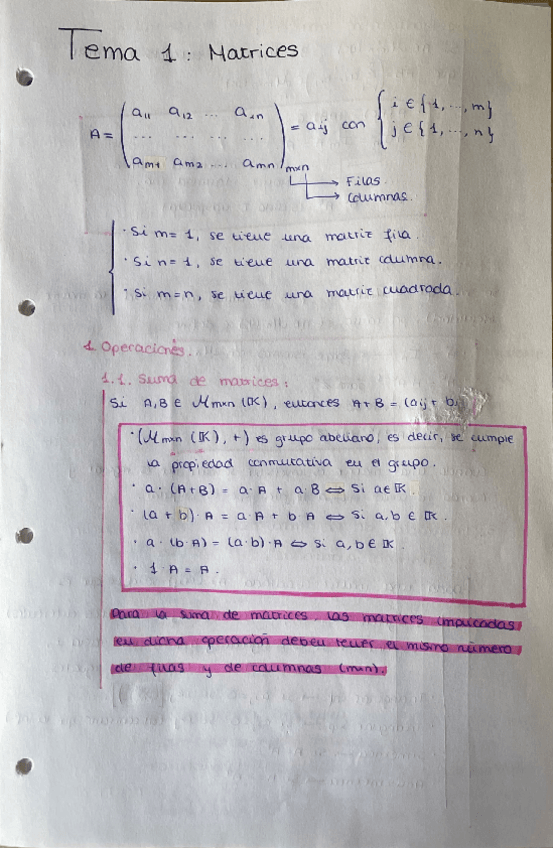 Tema 1: Matrices
A = ( a11 a12 ... a1n
... ... ... ...
am1 am2 ... amn )mxn = aij con { i ∈ {1, ..., m}
j ∈ {1, ..., n}
Filas
columnas
· Si m = 1, se tiene una matriz fila.
· Si n = 1, se tiene una matriz columna.
· Si m = n, se tiene una matriz cuadrada.
1. Operaciones.
1.1. Suma de matrices:
Si A, B ∈ Mmxn (K), entonces A + B = (aij + bij)
· (Mmxn (K), +) es grupo abeliano, es decir, se cumple
la propiedad conmutativa en el grupo.
· a · (A + B) = a · A + a · B ⇔ Si a ∈ K.
· (a + b) · A = a · A + b · A ⇔ Si a, b ∈ K.
· a · (b · A) = (a · b) · A ⇔ Si a, b ∈ K.
· 1 · A = A.
Para la suma de matrices, las matrices implicadas
en dicha operación deben tener el mismo número
de filas y de columnas (mxn).